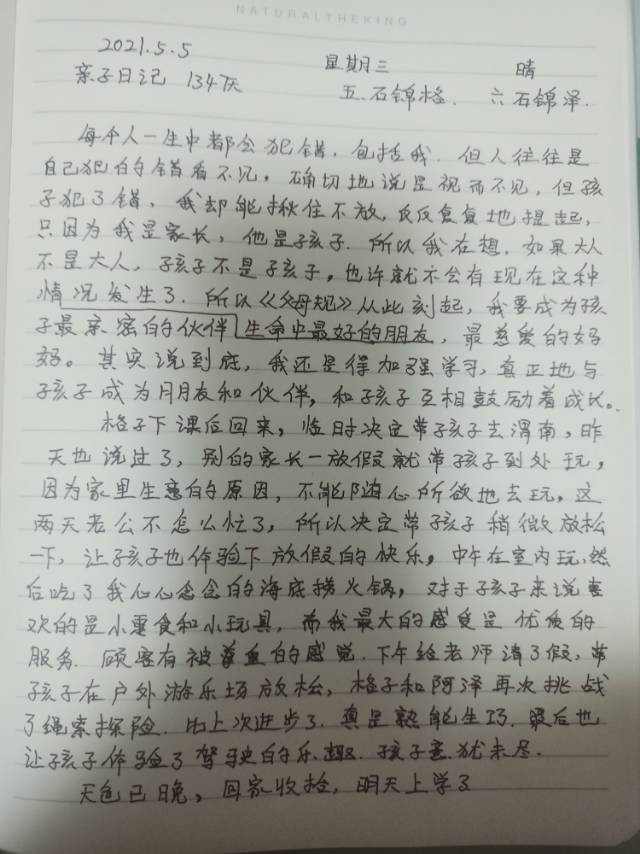 NATURALTHEKING
2021.5.5 星期三 晴
亲子日记 134天 五.石锦格. 六石锦泽.
每个人一生中都会犯错.包括我.但人往往是
自己犯的错看不见,确切地说是视而不见,但孩
子犯了错、我却能揪住不放,反反复复地提起,
只因为我是家长,他是孩子.所以我在想.如果大人
不是大人,孩子不是孩子,也许就不会有现在这种
情况发生了.所以《父母规》从此刻起,我要成为孩
子最亲密的伙伴生命中最好的朋友,最慈爱的妈
妈。其实说到底,我还是得加强学习,真正地与
孩子成为朋友和伙伴,和孩子互相鼓励着成长。
格子下课后回来,临时决定带孩子去渭南,昨
天也说过了,别的家长一放假就带孩子到处玩,
因为家里生意的原因,不能随心所欲地去玩。这
两天老公不怎么忙了,所以决定带孩子稍微放松
一下,让孩子也体验下放假的快乐,中午在室内玩,然
后吃了我心心念念的海底捞火锅,对于孩子来说喜
欢的是小零食和小玩具,而我最大的感受是优质的
服务.顾客有被尊重的感觉.下午给老师请了假,带
孩子在户外游乐场放松,格子和阿泽再次挑战
了绳索探险.比上次进步了.真是熟能生巧.最后也
让孩子体验了驾驶的乐趣.孩子意犹未尽.
天色已晚,回家收拾,明天上学了